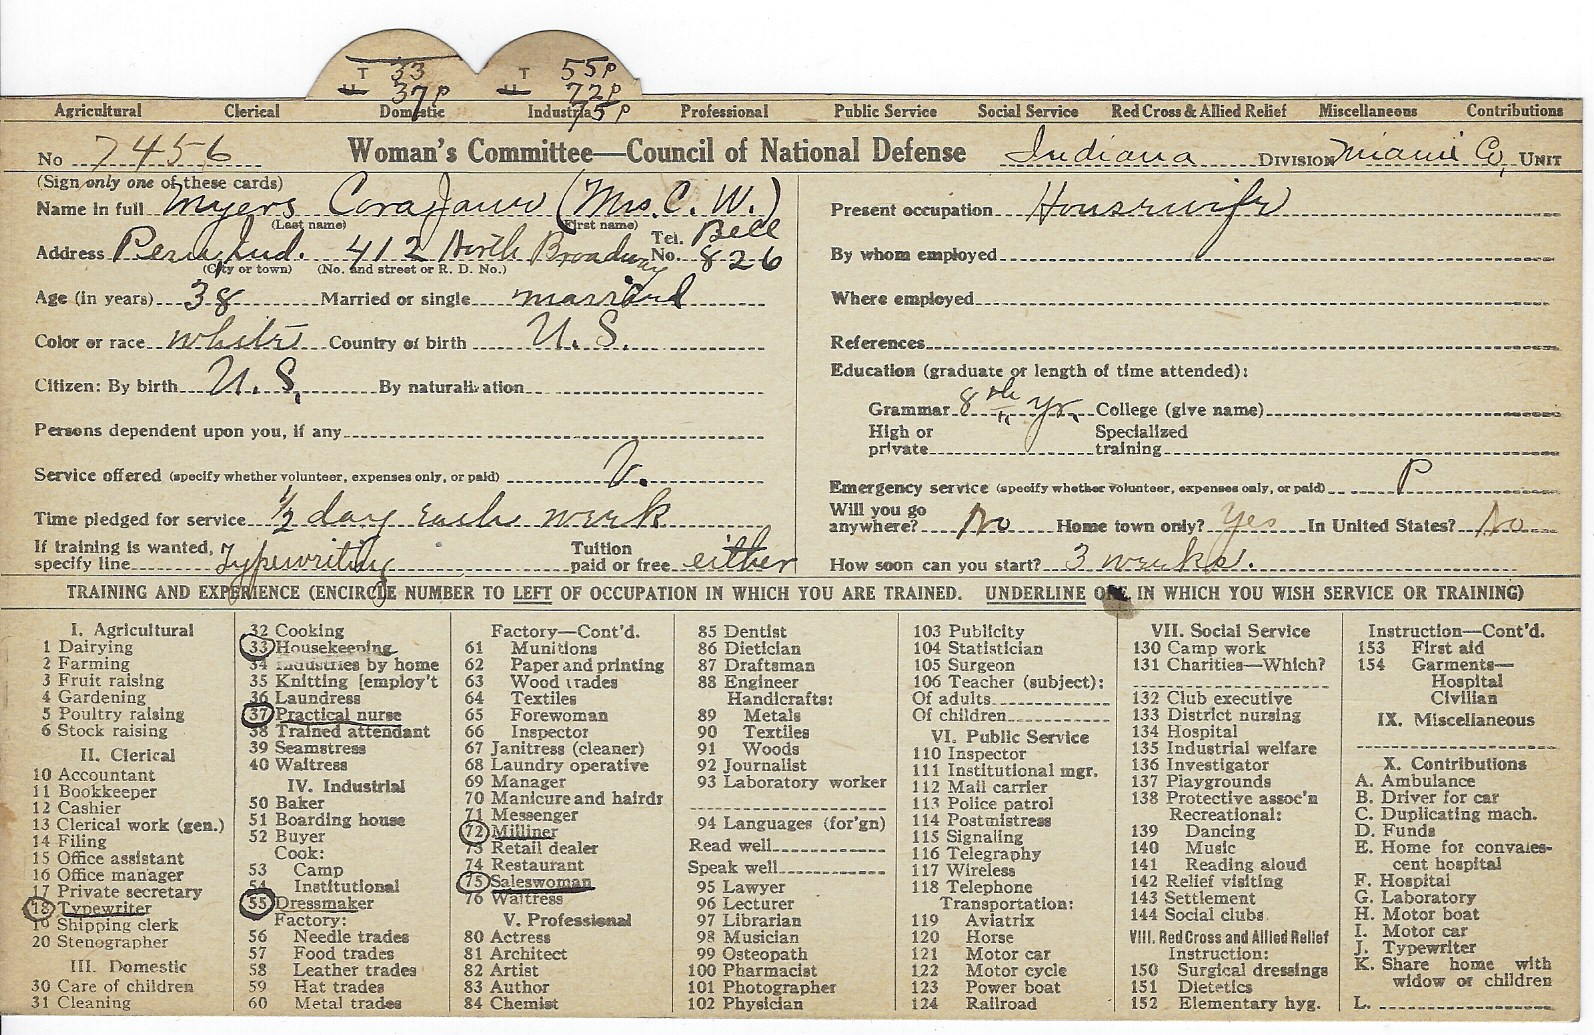 T 33 T 55P
U 37P U 72P
75P
Agricultural Clerical Domestic Industrial Professional Public Service Social Service Red Cross & Allied Relief Miscellaneous Contributions
No 7456 Woman's Committee—Council of National Defense Indiana DIVISION Miami Co, UNIT
(Sign only one of these cards)
Name in full Myers Cora Jane (Mrs. C. W.)
(Last name) (First name)
Address Peru, Ind. 412 North Broadway Tel. No. Bell 826
(City or town) (No. and street or R. D. No.)
Age (in years) 38 Married or single married
Color or race white Country of birth U. S.
Citizen: By birth U. S. By naturalization
Persons dependent upon you, if any
Service offered (specify whether volunteer, expenses only, or paid) V.
Time pledged for service 1/2 day each week
If training is wanted, specify line Typewriting Tuition paid or free either
Present occupation Housewife
By whom employed
Where employed
References
Education (graduate or length of time attended):
Grammar 8th yr. College (give name)
High or private Specialized training
Emergency service (specify whether volunteer, expenses only, or paid) P
Will you go anywhere? No Home town only? Yes In United States? No
How soon can you start? 3 weeks.
TRAINING AND EXPERIENCE (ENCIRCLE NUMBER TO LEFT OF OCCUPATION IN WHICH YOU ARE TRAINED. UNDERLINE ONE IN WHICH YOU WISH SERVICE OR TRAINING)
I. Agricultural
1 Dairying
2 Farming
3 Fruit raising
4 Gardening
5 Poultry raising
6 Stock raising
II. Clerical
10 Accountant
11 Bookkeeper
12 Cashier
13 Clerical work (gen.)
14 Filing
15 Office assistant
16 Office manager
17 Private secretary
18 Typewriter
19 Shipping clerk
20 Stenographer
III. Domestic
30 Care of children
31 Cleaning
32 Cooking
33 Housekeeping
34 Industries by home
35 Knitting [employ't
36 Laundress
37 Practical nurse
38 Trained attendant
39 Seamstress
40 Waitress
IV. Industrial
50 Baker
51 Boarding house
52 Buyer
Cook:
53 Camp
54 Institutional
55 Dressmaker
Factory:
56 Needle trades
57 Food trades
58 Leather trades
59 Hat trades
60 Metal trades
Factory—Cont'd.
61 Munitions
62 Paper and printing
63 Wood trades
64 Textiles
65 Forewoman
66 Inspector
67 Janitress (cleaner)
68 Laundry operative
69 Manager
70 Manicure and hairdr
71 Messenger
72 Milliner
73 Retail dealer
74 Restaurant
75 Saleswoman
76 Waitress
V. Professional
80 Actress
81 Architect
82 Artist
83 Author
84 Chemist
85 Dentist
86 Dietician
87 Draftsman
88 Engineer
Handicrafts:
89 Metals
90 Textiles
91 Woods
92 Journalist
93 Laboratory worker
94 Languages (for'gn)
Read well
Speak well
95 Lawyer
96 Lecturer
97 Librarian
98 Musician
99 Osteopath
100 Pharmacist
101 Photographer
102 Physician
103 Publicity
104 Statistician
105 Surgeon
106 Teacher (subject):
Of adults
Of children
VI. Public Service
110 Inspector
111 Institutional mgr.
112 Mail carrier
113 Police patrol
114 Postmistress
115 Signaling
116 Telegraphy
117 Wireless
118 Telephone
Transportation:
119 Aviatrix
120 Horse
121 Motor car
122 Motor cycle
123 Power boat
124 Railroad
VII. Social Service
130 Camp work
131 Charities—Which?
132 Club executive
133 District nursing
134 Hospital
135 Industrial welfare
136 Investigator
137 Playgrounds
138 Protective assoc'n
Recreational:
139 Dancing
140 Music
141 Reading aloud
142 Relief visiting
143 Settlement
144 Social clubs
VIII. Red Cross and Allied Relief
Instruction:
150 Surgical dressings
151 Dietetics
152 Elementary hyg.
Instruction—Cont'd.
153 First aid
154 Garments—
Hospital
Civilian
IX. Miscellaneous
X. Contributions
A. Ambulance
B. Driver for car
C. Duplicating mach.
D. Funds
E. Home for convales-
cent hospital
F. Hospital
G. Laboratory
H. Motor boat
I. Motor car
J. Typewriter
K. Share home with
widow or children
L.